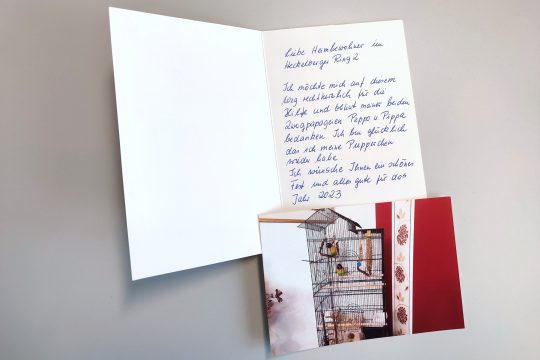 Liebe Heimbewohner im
Heckelberger Ring 2
Ich möchte mich auf diesem
Weg recht herzlich für die
Hilfe und meiner beiden
Zwergpapageien Peppo u. Pippa
bedanken. Ich bin glücklich
das ich meine
wieder habe.
Ich wünsche Ihnen ein schönes
Fest und alles gute für das
Jahr 2023